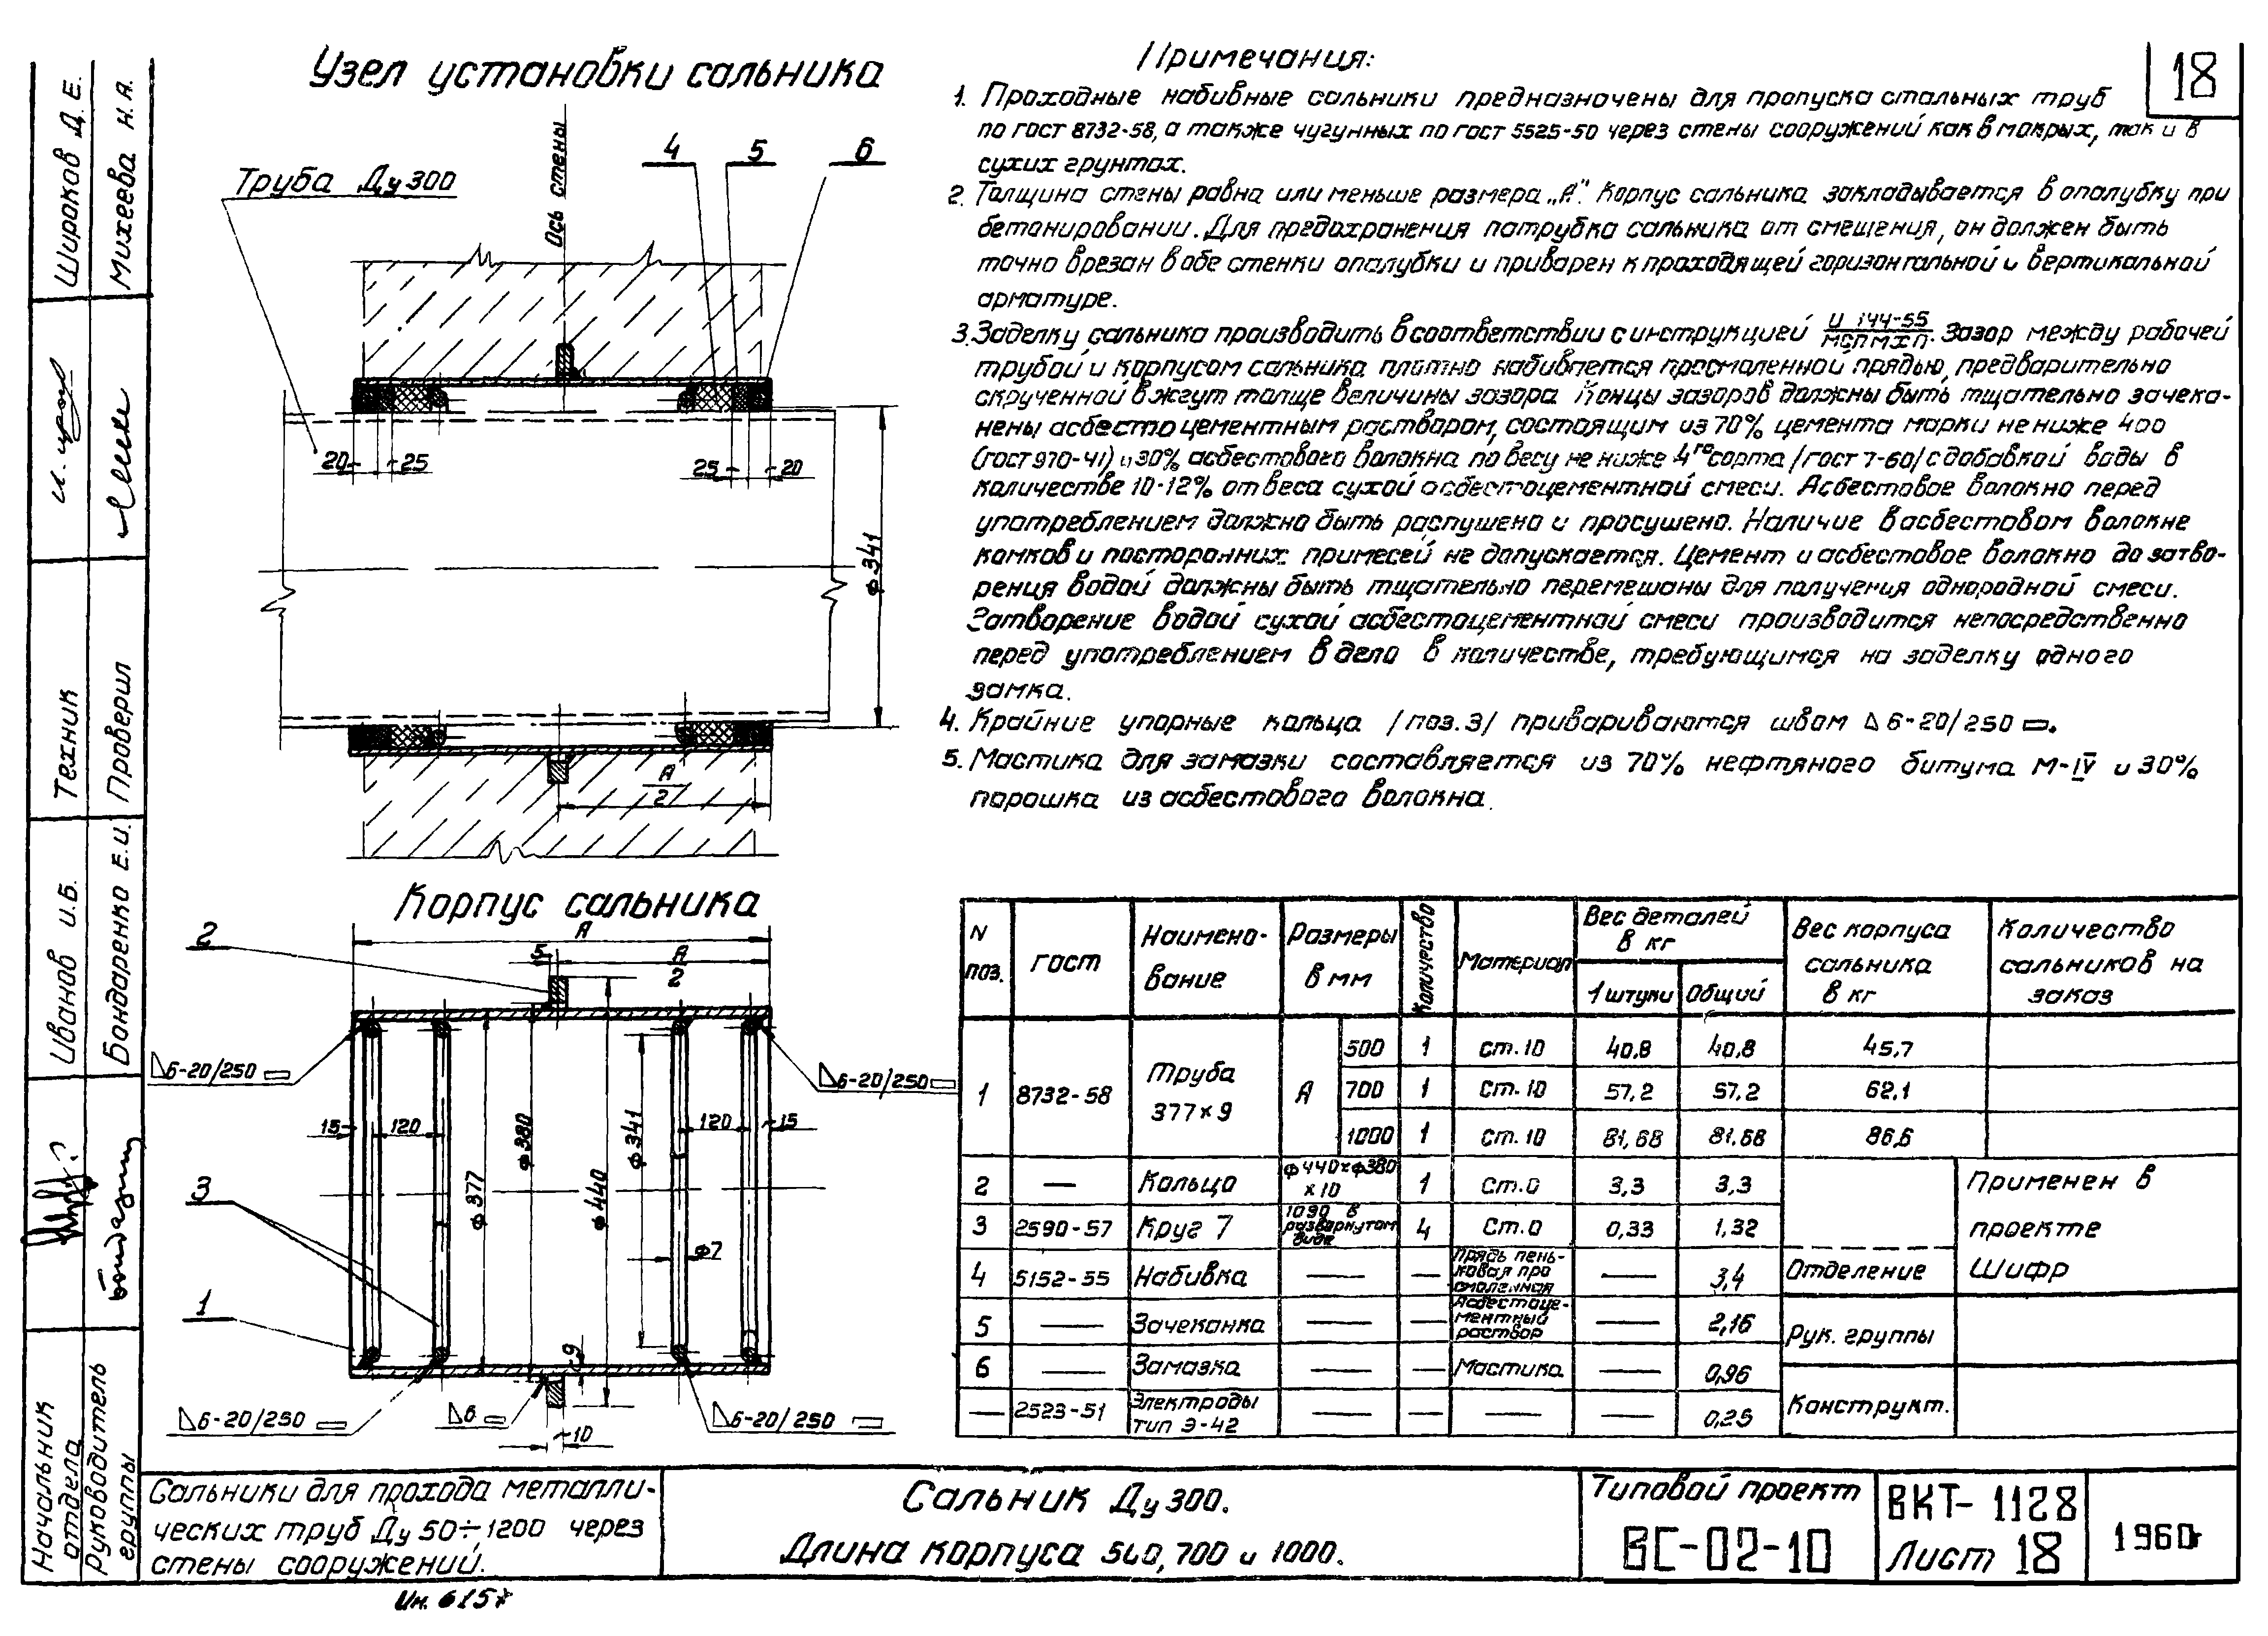 Узел установки сальника
Труба Ду300
Ось стены
4
5
6
20
25
25
20
ф341
А
2
Корпус сальника
А
5
А
2
2
∆6-20/250
∆6-20/250
15
120
120
15
ф377
ф380
ф440
ф341
ф7
3
1
9
∆6-20/250
∆6
∆6-20/250
10
Примечания:
18
1. Проходные набивные сальники предназначены для пропуска стальных труб
по гост 8732-58, а также чугунных по гост 5525-50 через стены сооружений как в мокрых, так и в
сухих грунтах.
2. Толщина стены равна или меньше размера „А". Корпус сальника закладывается в опалубку при
бетонировании. Для предохранения патрубка сальника от смещения, он должен быть
точно врезан в обе стенки опалубки и приварен к проходящей горизонтальной и вертикальной
арматуре.
3. Заделку сальника производить в соответствии с инструкцией И 144-55 / МСПМХП. Зазор между рабочей
трубой и корпусом сальника плотно набивается просмоленной прядью, предварительно
скрученной в жгут толще величины зазора. Концы зазоров должны быть тщательно зачека-
нены асбестоцементным раствором, состоящим из 70% цемента марки не ниже 400
(гост 970-41) и 30% асбестового волокна по весу не ниже 4го сорта /гост 7-60/ с добавкой воды в
количестве 10-12% от веса сухой асбестоцементной смеси. Асбестовое волокно перед
употреблением должно быть распушено и просушено. Наличие в асбестовом волокне
комков и посторонних примесей не допускается. Цемент и асбестовое волокно до затво-
рения водой должны быть тщательно перемешаны для получения однородной смеси.
Затворение водой сухой асбестоцементной смеси производится непосредственно
перед употреблением в дело в количестве, требующимся на заделку одного
замка.
4. Крайние упорные кольца /поз.3/ привариваются швом ∆6-20/250 ▭.
5. Мастика для замазки составляется из 70% нефтяного битума М-IV и 30%
порошка из асбестового волокна.
N поз. гост Наимено-вание Размеры в мм Количество Материал Вес деталей в кг 1 штуки Общий Вес корпуса сальника в кг Количество сальников на заказ
1 8732-58 Труба 377×9 А 500 1 Ст.10 40,8 40,8 45,7
700 1 Ст.10 57,2 57,2 62,1
1000 1 Ст.10 81,68 81,68 86,6
2 — Кольцо ф440×ф380 ×10 1 Ст.0 3,3 3,3
3 2590-57 Круг 7 1090 в развернутом виде 4 Ст.0 0,33 1,32
4 5152-55 Набивка — — Прядь пень-ковая про смоленная — 3,4
5 — Зачеканка — — Асбестоце-ментный раствор — 2,16
6 — Замазка — — Мастика — 0,96
— 2523-51 Электроды тип Э-42 — — — — 0,25
Применен в
проекте
Отделение Шифр
Рук. группы
Конструкт.
Широков Д.Е.
Михеева Н.А.
Техник
Проверил
Иванов И.Б.
Бондаренко Е.И.
Начальник отдела
Руководитель группы
Сальники для прохода металли-
ческих труб Ду 50÷1200 через
стены сооружений.
Сальник Ду300.
Длина корпуса 500, 700 и 1000.
Типовой проект
ВС-02-10
ВКТ-1128
Лист 18
1960г
Ин. 6157